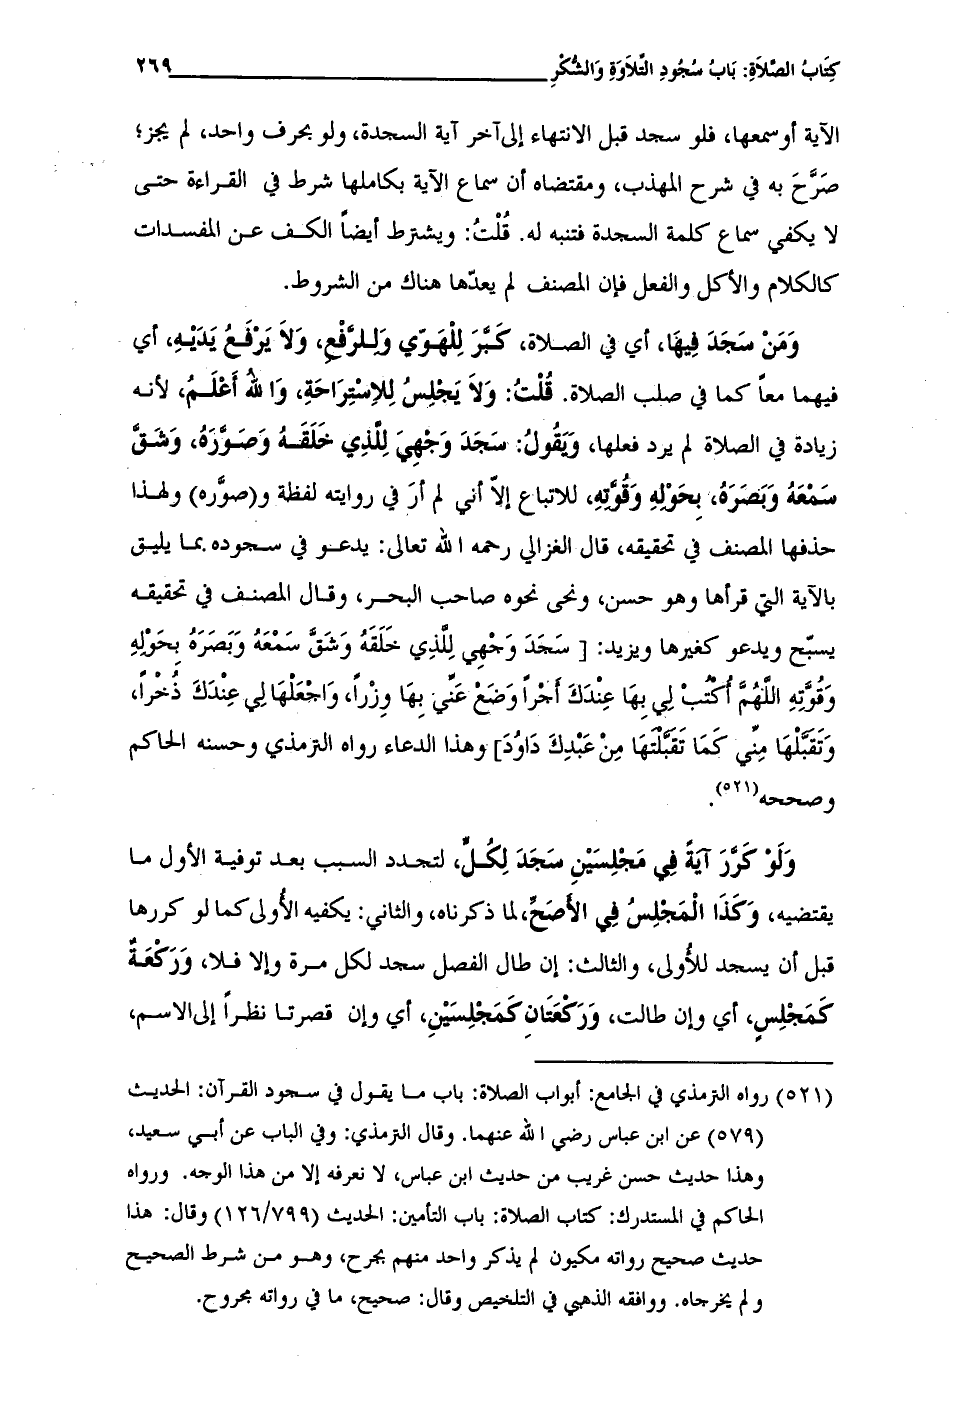 كِتَابُ الصَّلاَةِ: بَابُ سُجُودِ التِّلاَوَةِ وَالشُّكْرِ ٢٦٩
الآية أو سمعها، فلو سجد قبل الانتهاء إلى آخر آية السجدة، ولو بحرف واحد، لم يجز؛
صَرَّحَ به في شرح المهذب، ومقتضاه أن سماع الآية بكاملها شرط في القراءة حتى
لا يكفي سماع كلمة السجدة فتنبه له. قُلْتُ: ويشترط أيضاً الكف عن المفسدات
كالكلام والأكل والفعل فإن المصنف لم يعدّها هناك من الشروط.
وَمَنْ سَجَدَ فِيهَا، أي في الصلاة، كَبَّرَ لِلْهَوِّي وَلِلرَّفْعِ، وَلاَ يَرْفَعُ يَدَيْهِ، أي
فيهما معاً كما في صلب الصلاة. قُلْتُ: وَلاَ يَجْلِسُ لِلإِسْتِرَاحَةِ، وَا للهُ أَعْلَمُ، لأنه
زيادة في الصلاة لم يرد فعلها، وَيَقُولُ: سَجَدَ وَجْهِيَ لِلَّذِي خَلَقَهُ وَصَوَّرَهُ، وَشَقَّ
سَمْعَهُ وَبَصَرَهُ، بِحَوْلِهِ وَقُوَّتِهِ، للاتباع إلاّ أني لم أرَ في روايته لفظة و(صوَّره) ولهذا
حذفها المصنف في تحقيقه، قال الغزالي رحمه ا لله تعالى: يدعو في سجوده بما يليق
بالآية التي قرأها وهو حسن، ونحى نحوه صاحب البحر، وقال المصنف في تحقيقه
يسبّح ويدعو كغيرها ويزيد: [ سَجَدَ وَجْهِي لِلَّذِي خَلَقَهُ وَشَقَّ سَمْعَهُ وَبَصَرَهُ بِحَوْلِهِ
وَقُوَّتِهِ اللَّهُمَّ أُكْتُبْ لِي بِهَا عِنْدَكَ أَجْراً وَضَعْ عَنِّي بِهَا وِزْراً، وَاجْعَلْهَا لِي عِنْدَكَ ذُخْراً،
وَتَقَبَّلْهَا مِنِّي كَمَا تَقَبَّلْتَهَا مِنْ عَبْدِكَ دَاوُدَ] وهذا الدعاء رواه الترمذي وحسنه الحاكم
وصححه(٥٢١).
وَلَوْ كَرَّرَ آيَةً فِي مَجْلِسَيْنِ سَجَدَ لِكُلٍّ، لتجدد السبب بعد توفية الأول ما
يقتضيه، وَكَذَا الْمَجْلِسُ فِي الأَصَحِّ، لما ذكرناه، والثاني: يكفيه الأُولى كما لو كررها
قبل أن يسجد للأُولى، والثالث: إن طال الفصل سجد لكل مرة وإلا فلا، وَرَكْعَةٌ
كَمَجْلِسٍ، أي وإن طالت، وَرَكْعَتَانِ كَمَجْلِسَيْنِ، أي وإن قصرتا نظراً إلى الاسم،
(٥٢١) رواه الترمذي في الجامع: أبواب الصلاة: باب ما يقول في سجود القرآن: الحديث
(٥٧٩) عن ابن عباس رضي ا لله عنهما. وقال الترمذي: وفي الباب عن أبي سعيد،
وهذا حديث حسن غريب من حديث ابن عباس، لا نعرفه إلا من هذا الوجه. ورواه
الحاكم في المستدرك: كتاب الصلاة: باب التأمين: الحديث (١٢٦/٧٩٩) وقال: هذا
حديث صحيح رواته مكيون لم يذكر واحد منهم بجرح، وهو من شرط الصحيح
ولم يخرجاه. ووافقه الذهبي في التلخيص وقال: صحيح، ما في رواته مجروح.